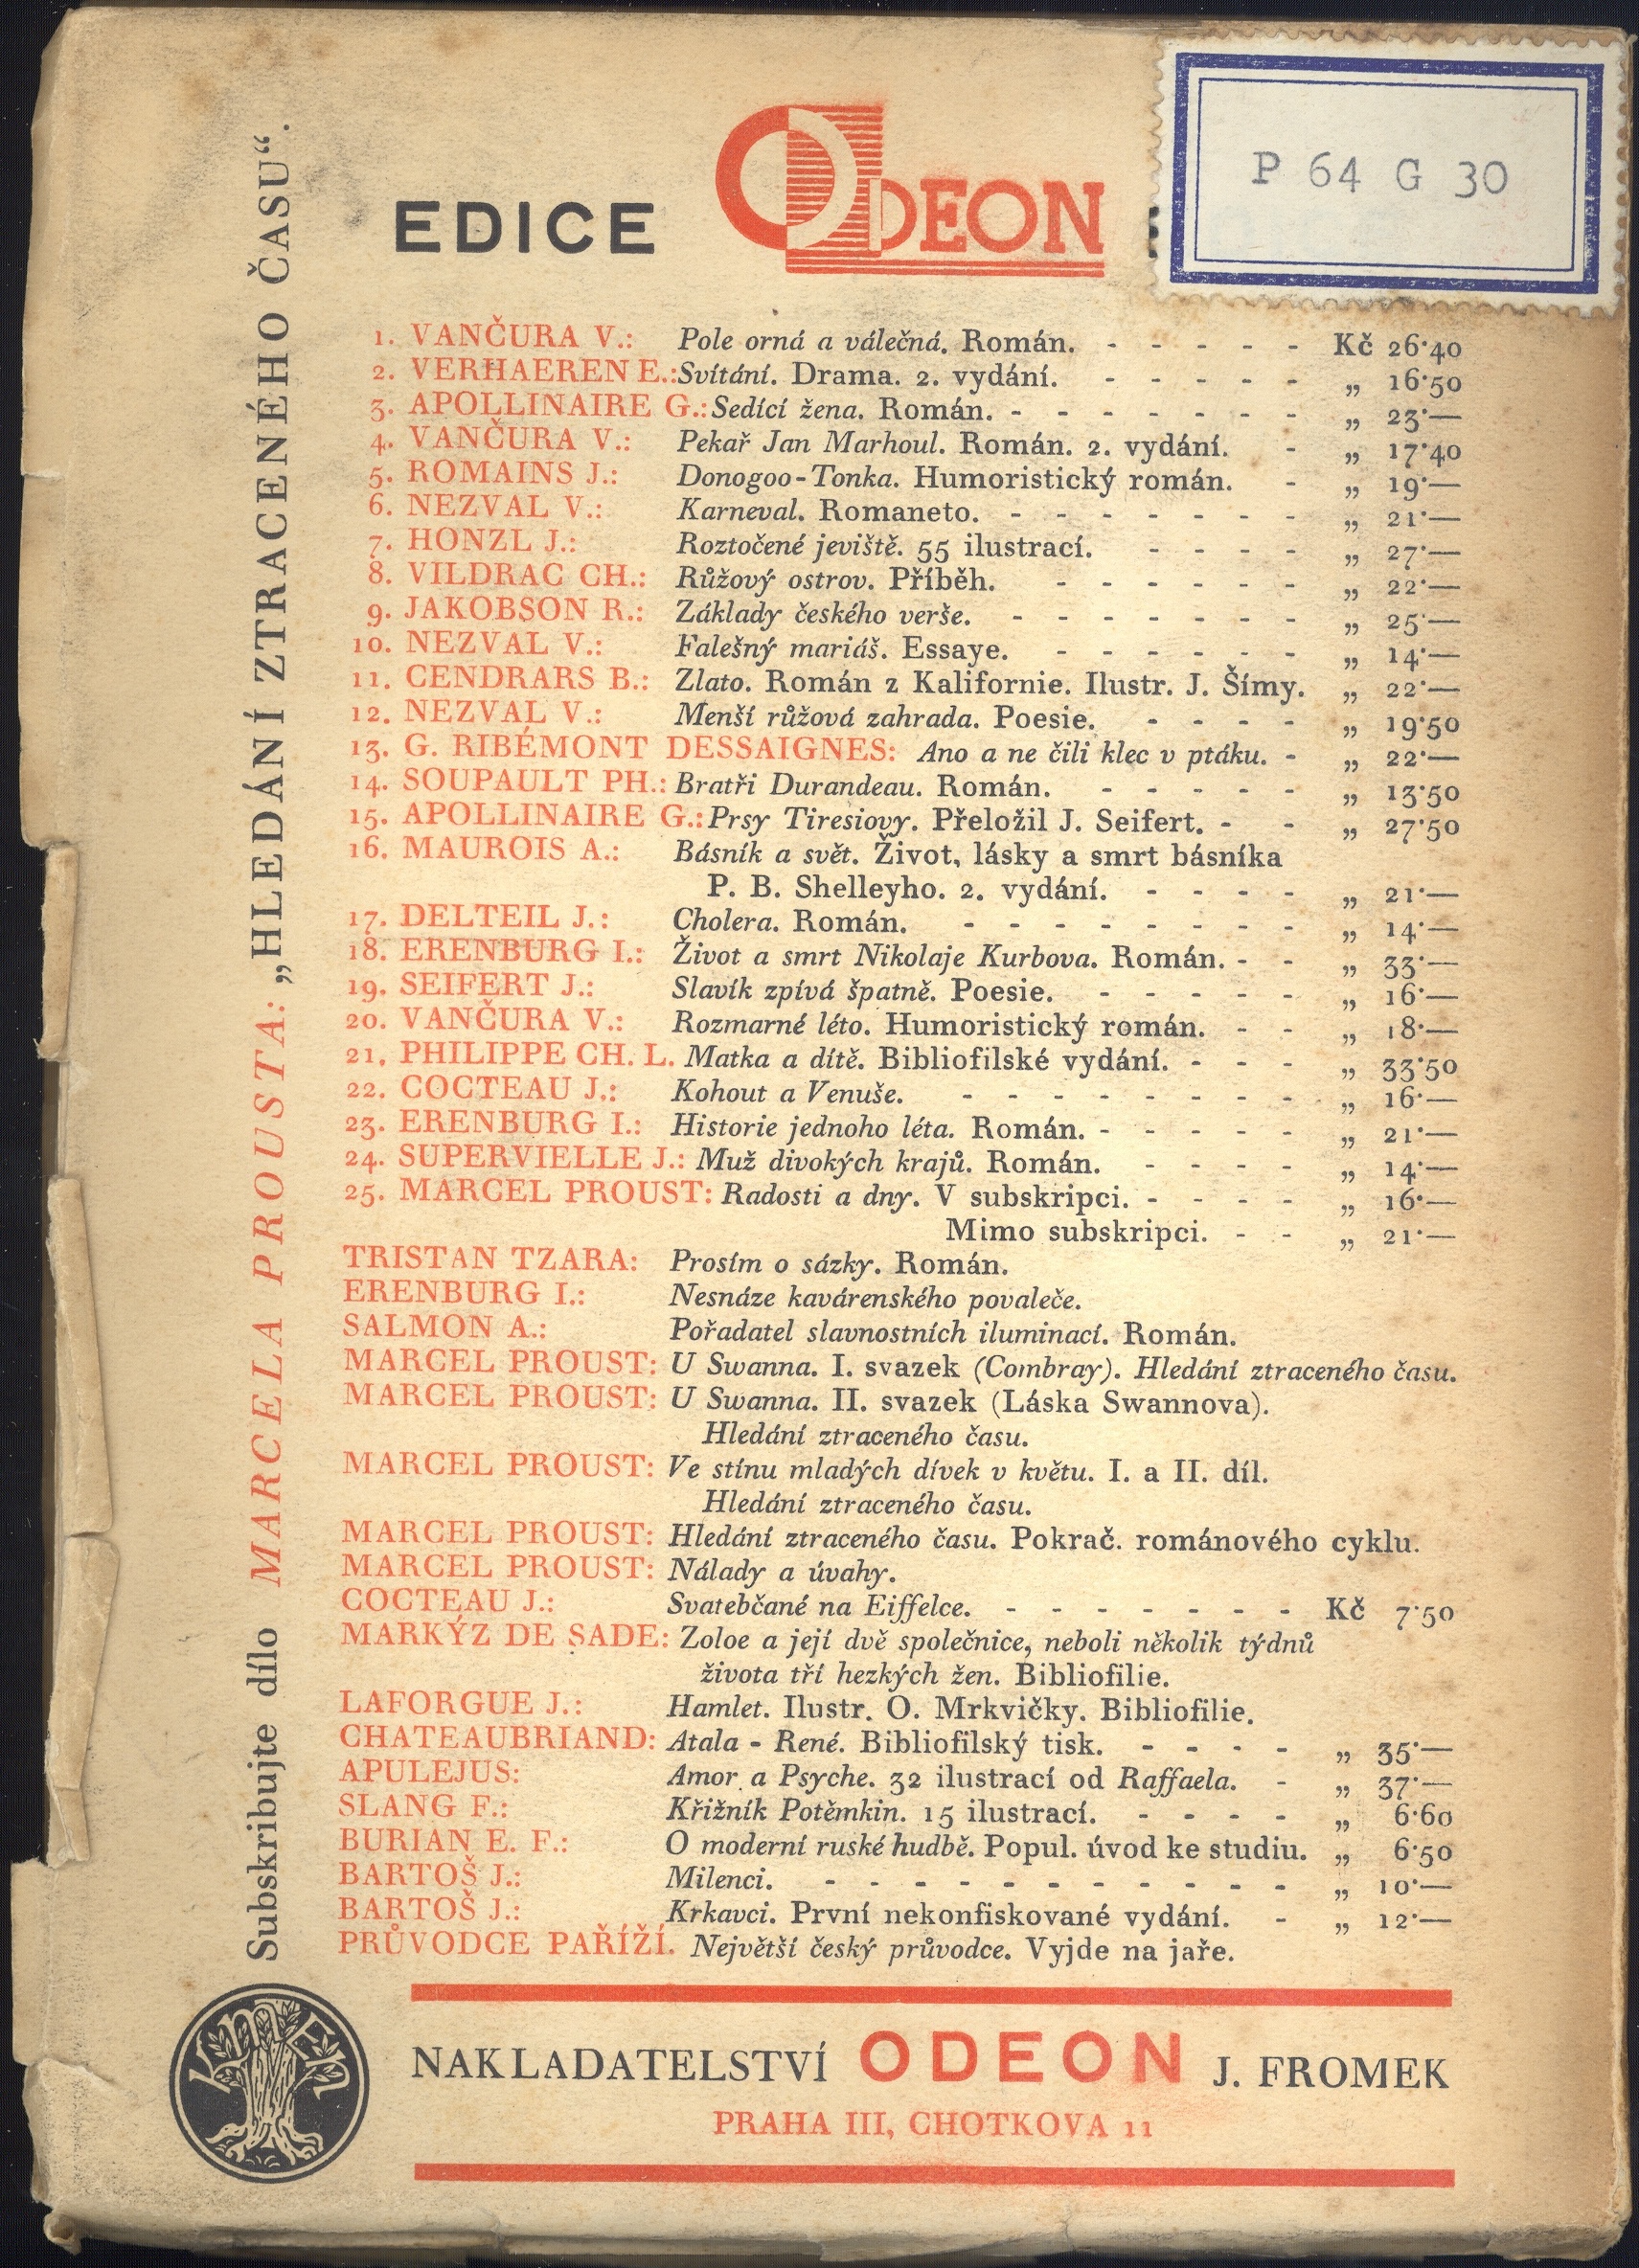 EDICE ODEON
P 64 G 30
1. VANČURA V.: Pole orná a válečná. Román. - - - - - Kč 26·40
2. VERHAEREN E.: Svítání. Drama. 2. vydání. - - - - - „ 16·50
3. APOLLINAIRE G.: Sedící žena. Román. - - - - - - - „ 23·—
4. VANČURA V.: Pekař Jan Marhoul. Román. 2. vydání. - „ 17·40
5. ROMAINS J.: Donogoo-Tonka. Humoristický román. - „ 19·—
6. NEZVAL V.: Karneval. Romaneto. - - - - - - - „ 21·—
7. HONZL J.: Roztočené jeviště. 55 ilustrací. - - - - „ 27·—
8. VILDRAC CH.: Růžový ostrov. Příběh. - - - - - - „ 22·—
9. JAKOBSON R.: Základy českého verše. - - - - - - - „ 25·—
10. NEZVAL V.: Falešný mariáš. Essaye. - - - - - - „ 14·—
11. CENDRARS B.: Zlato. Román z Kalifornie. Ilustr. J. Šímy. „ 22·—
12. NEZVAL V.: Menší růžová zahrada. Poesie. - - - - „ 19·50
13. G. RIBÉMONT DESSAIGNES: Ano a ne čili klec v ptáku. - „ 22·—
14. SOUPAULT PH.: Bratři Durandeau. Román. - - - - - „ 13·50
15. APOLLINAIRE G.: Prsy Tiresiovy. Přeložil J. Seifert. - - „ 27·50
16. MAUROIS A.: Básník a svět. Život, lásky a smrt básníka
P. B. Shelleyho. 2. vydání. - - - - „ 21·—
17. DELTEIL J.: Cholera. Román. - - - - - - - - „ 14·—
18. ERENBURG I.: Život a smrt Nikolaje Kurbova. Román. - - „ 33·—
19. SEIFERT J.: Slavík zpívá špatně. Poesie. - - - - - „ 16·—
20. VANČURA V.: Rozmarné léto. Humoristický román. - - „ 18·—
21. PHILIPPE CH. L. Matka a dítě. Bibliofilské vydání. - - - „ 33·50
22. COCTEAU J.: Kohout a Venuše. - - - - - - - - „ 16·—
23. ERENBURG I.: Historie jednoho léta. Román. - - - - - „ 21·—
24. SUPERVIELLE J.: Muž divokých krajů. Román. - - - - „ 14·—
25. MARCEL PROUST: Radosti a dny. V subskripci. - - - - „ 16·—
Mimo subskripci. - - „ 21·—
TRISTAN TZARA: Prosím o sázky. Román.
ERENBURG I.: Nesnáze kavárenského povaleče.
SALMON A.: Pořadatel slavnostních iluminací. Román.
MARCEL PROUST: U Swanna. I. svazek (Combray). Hledání ztraceného času.
MARCEL PROUST: U Swanna. II. svazek (Láska Swannova).
Hledání ztraceného času.
MARCEL PROUST: Ve stínu mladých dívek v květu. I. a II. díl.
Hledání ztraceného času.
MARCEL PROUST: Hledání ztraceného času. Pokrač. románového cyklu.
MARCEL PROUST: Nálady a úvahy.
COCTEAU J.: Svatebčané na Eiffelce. - - - - - - - Kč 7·50
MARKÝZ DE SADE: Zoloe a její dvě společnice, neboli několik týdnů
života tří hezkých žen. Bibliofilie.
LAFORGUE J.: Hamlet. Ilustr. O. Mrkvičky. Bibliofilie.
CHATEAUBRIAND: Atala - René. Bibliofilský tisk. - - - - „ 35·—
APULEJUS: Amor a Psyche. 32 ilustrací od Raffaela. - „ 37·—
SLANG F.: Křižník Potěmkin. 15 ilustrací. - - - - „ 6·60
BURIAN E. F.: O moderní ruské hudbě. Popul. úvod ke studiu. „ 6·50
BARTOŠ J.: Milenci. - - - - - - - - - - - „ 10·—
BARTOŠ J.: Krkavci. První nekonfiskované vydání. - „ 12·—
PRŮVODCE PAŘÍŽÍ. Největší český průvodce. Vyjde na jaře.
Subskribujte dílo MARCELA PROUSTA: „HLEDÁNÍ ZTRACENÉHO ČASU“.
KMEN
NAKLADATELSTVÍ ODEON J. FROMEK
PRAHA III, CHOTKOVA 11